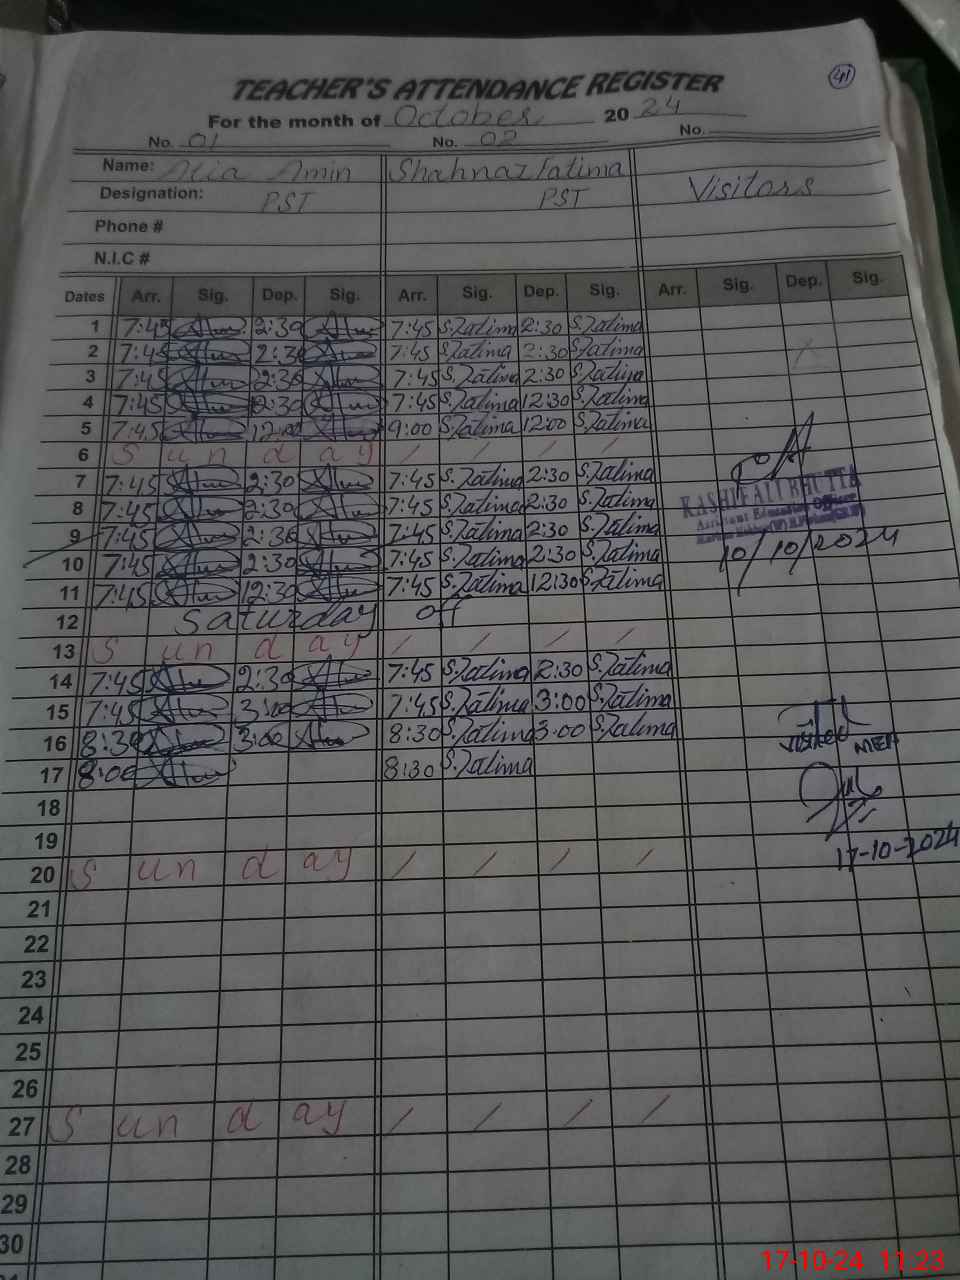 41
TEACHER'S ATTENDANCE REGISTER
For the month of October 2024
No. 01 No. 02 No.
Name: Alia Amin Shahnaz Fatima Visitors
Designation: PST PST
Phone #
N.I.C #
Dates Arr. Sig. Dep. Sig. Arr. Sig. Dep. Sig. Arr. Sig. Dep. Sig.
1 7:45 2:30 7:45 S.Fatima 2:30 S.Fatima
2 7:45 2:30 7:45 S.Fatima 2:30 S.Fatima
3 7:45 2:30 7:45 S.Fatima 2:30 S.Fatima
4 7:45 12:30 7:45 S.Fatima 12:30 S.Fatima
5 7:45 12:00 9:00 S.Fatima 12:00 S.Fatima
6 S un d ay / / / /
7 7:45 2:30 7:45 S.Fatima 2:30 S.Fatima
8 7:45 2:30 7:45 S.Fatima 2:30 S.Fatima
KASHIF ALI BHUTTA
Assistant Education Officer
9 7:45 2:30 7:45 S.Fatima 2:30 S.Fatima
10/10/2024
10 7:45 2:30 7:45 S.Fatima 2:30 S.Fatima
11 7:45 12:30 7:45 S.Fatima 12:30 S.Fatima
12 Saturday off
13 S un d ay / / / /
14 7:45 2:30 7:45 S.Fatima 2:30 S.Fatima
15 7:45 3:00 7:45 S.Fatima 3:00 S.Fatima
16 8:30 3:00 8:30 S.Fatima 3:00 S.Fatima
visited MEA
17 8:00 8:30 S.Fatima
18
17-10-2024
19
20 S un d ay / / / /
21
22
23
24
25
26
27 S un d ay / / / /
28
29
30
17-10-24 11:23